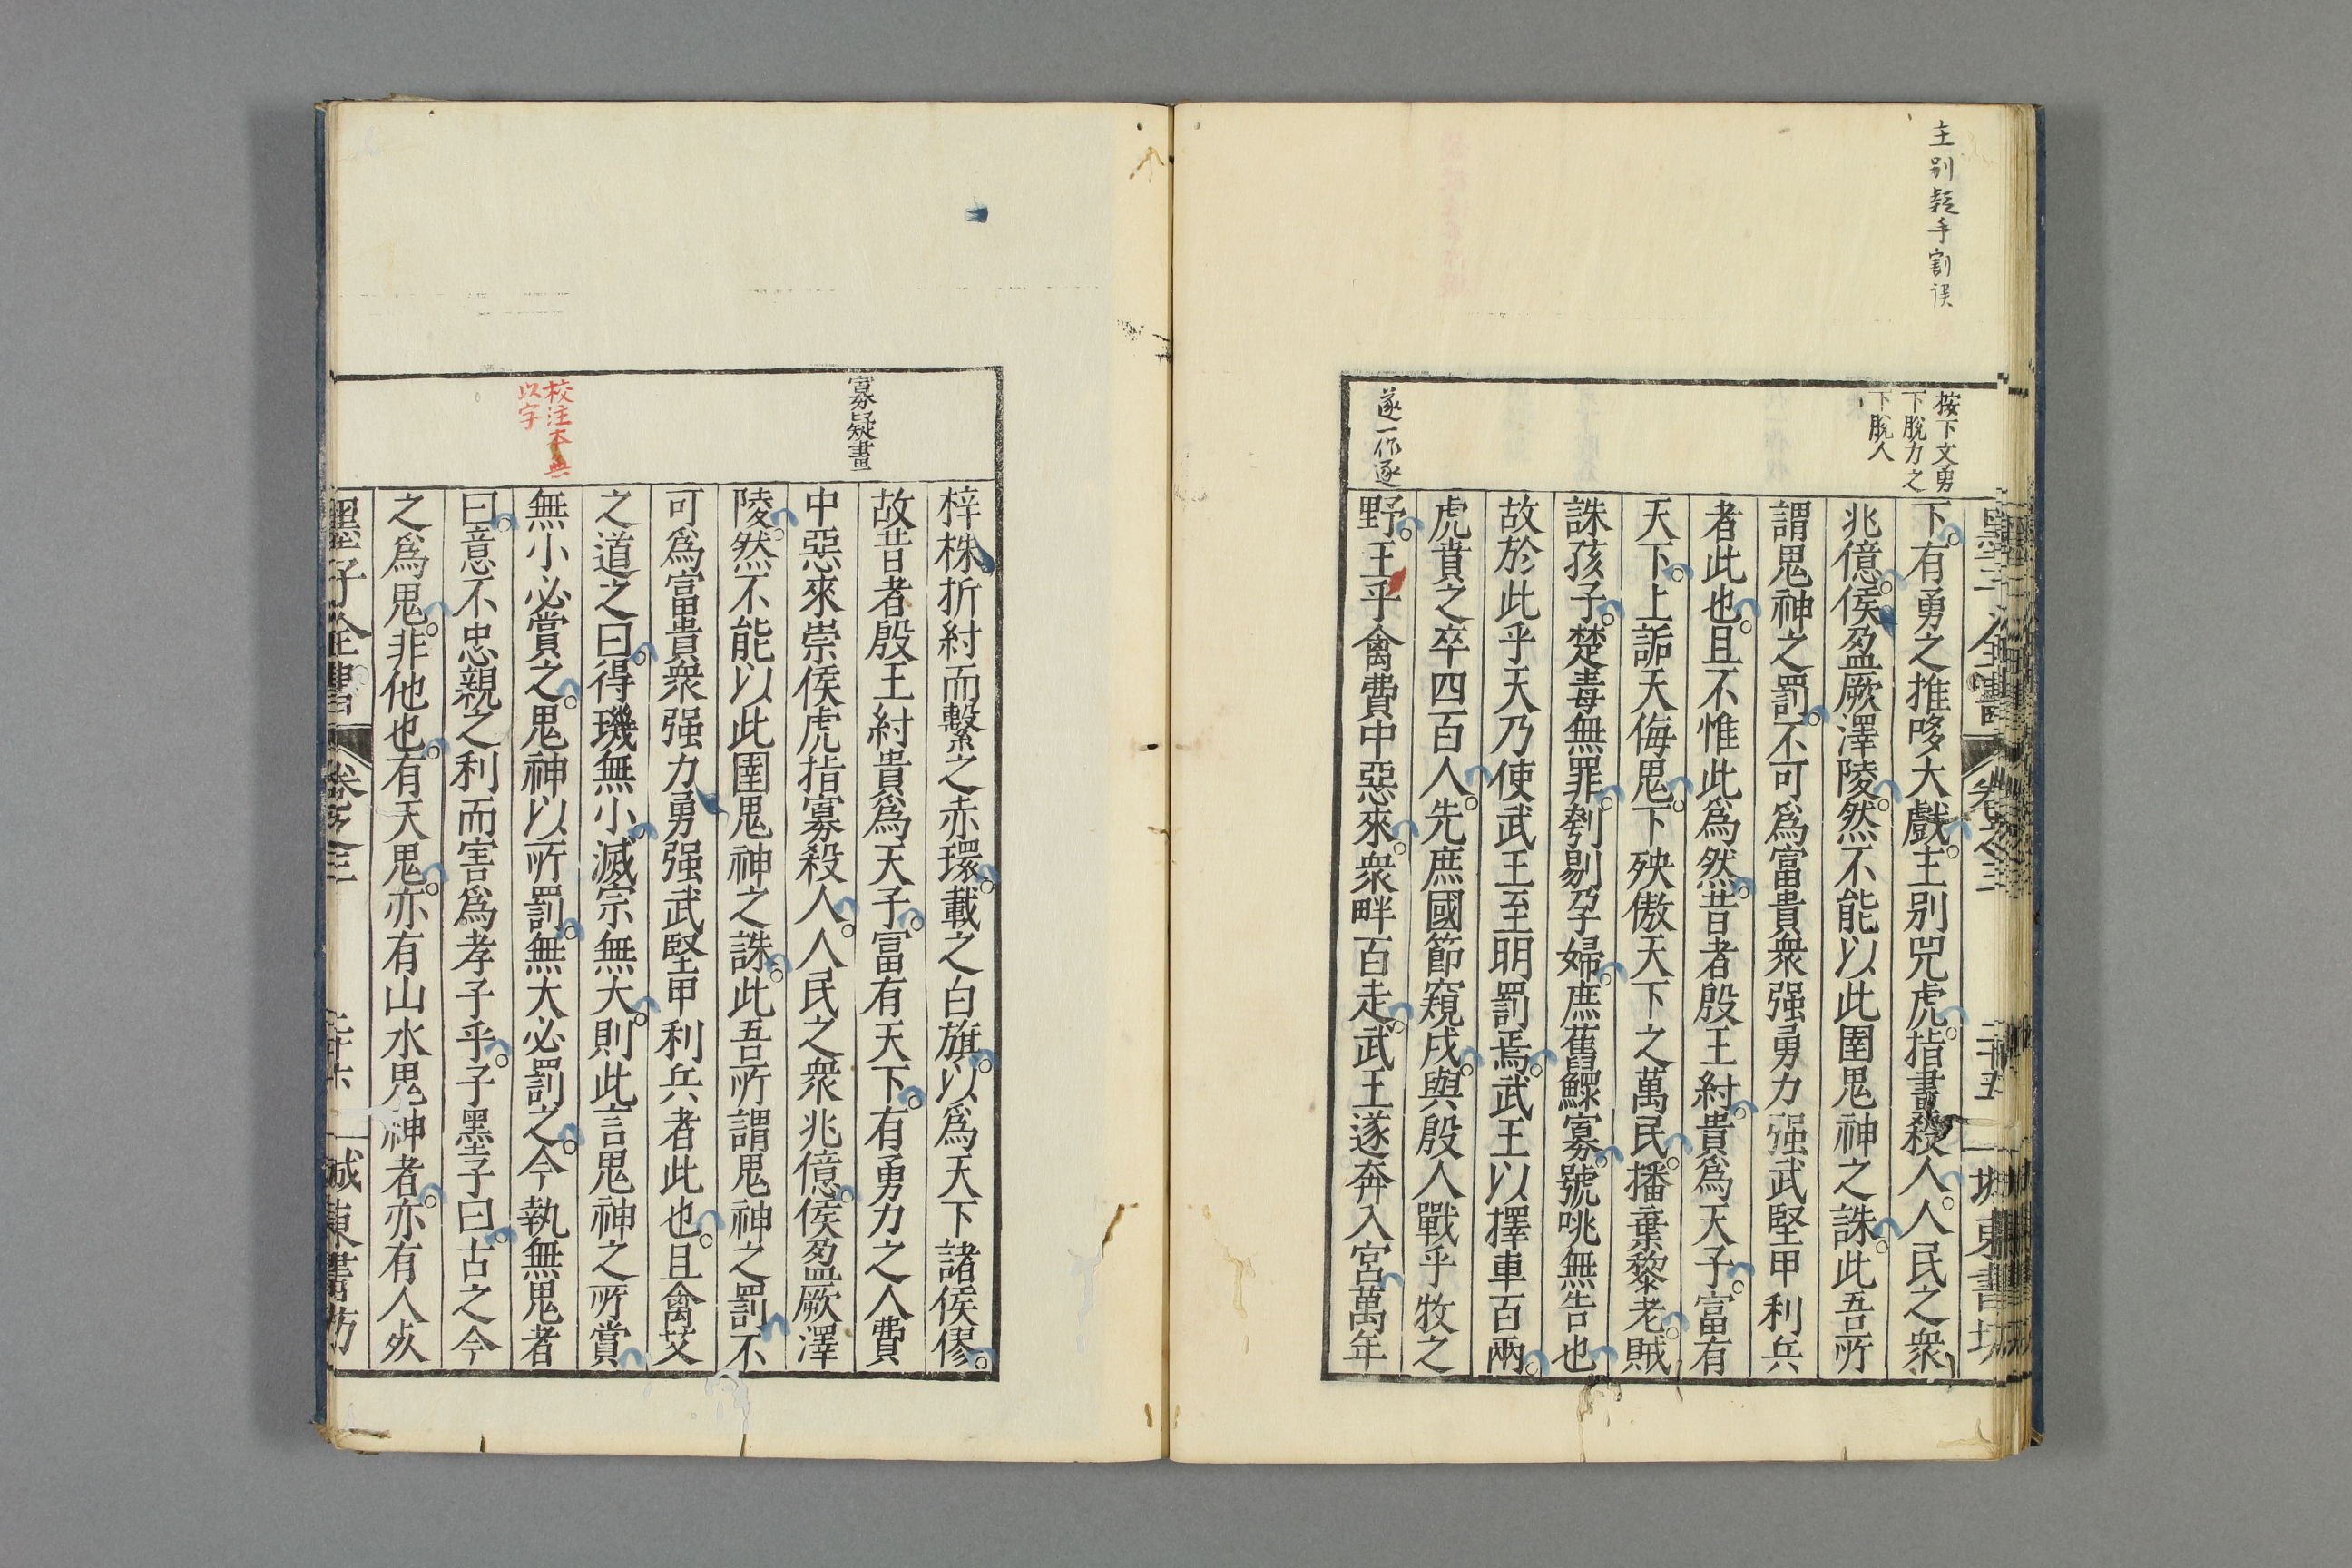 主别疑手割误
按下文勇
下脫力之
下脫人
遂一作逐
墨子全書
卷之三
二十五
城東書坊
下。有勇之推哆大戲。主别兕虎。指畫殺人。人民之衆
兆億。侯盈厥澤陵。然不能以此圉鬼神之誅。此吾所
謂鬼神之罰。不可爲富貴衆强勇力强武堅甲利兵
者此也。且不惟此爲然。昔者殷王紂。貴爲天子。富有
天下。上詬天侮鬼。下殃傲天下之萬民。播棄黎老。賊
誅孩子。楚毒無罪。刳剔孕婦。庶舊鰥寡。號咷無告也
故於此乎天乃使武王至明罰焉。武王以擇車百兩。
虎賁之卒四百人。先庶國節窺戌。與殷人戰乎牧之
野。王乎禽費中惡來。衆畔百走。武王遂奔入宮萬年
寡疑畫
校注本無
以字
梓株折紂而繫之赤環。載之白旗。以爲天下諸侯僇。
故昔者殷王紂貴爲天子。富有天下。有勇力之人費
中惡來崇侯虎指寡殺人。人民之衆兆億。侯盈厥澤
陵。然不能以此圉鬼神之誅。此吾所謂鬼神之罰。不
可爲富貴衆强力勇强武堅甲利兵者此也。且禽艾
之道之曰。得璣無小。滅宗無大。則此言鬼神之所賞
無小必賞之。鬼神以所罰。無大必罰之。今執無鬼者
曰。意不忠親之利而害爲孝子乎。子墨子曰。古之今
之爲鬼。非他也。有天鬼。亦有山水鬼神者。亦有人㱙
墨子全書
卷之三
二十六
城東書坊